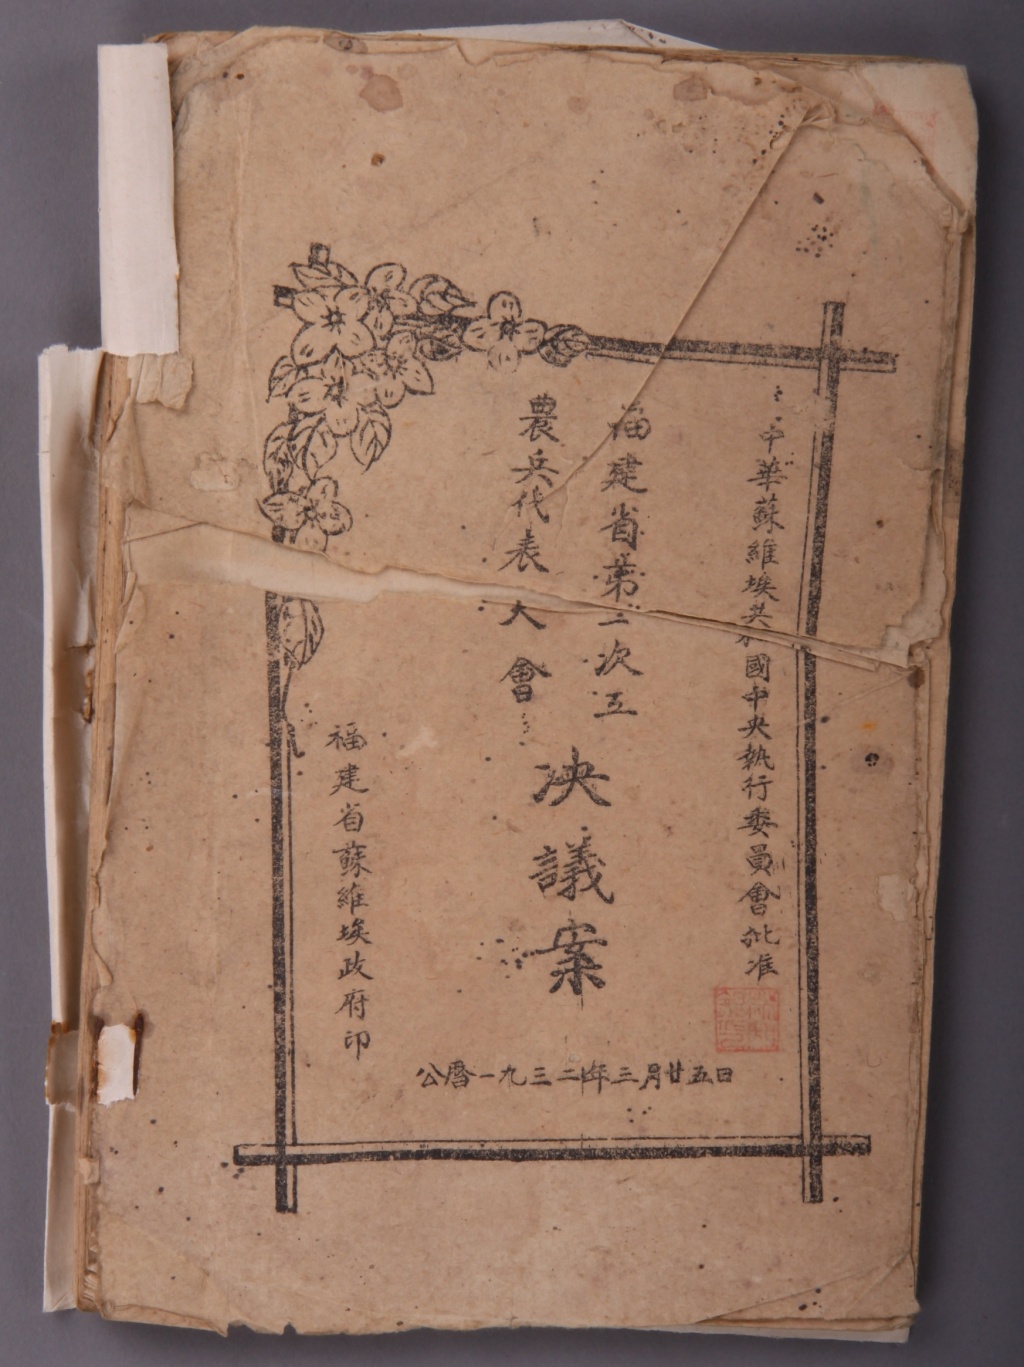 中華蘇維埃共和國中央執行委員會批准
福建省第二次工
農兵代表大會
决議案
福建省蘇維埃政府印
公曆一九三二年三月廿五日